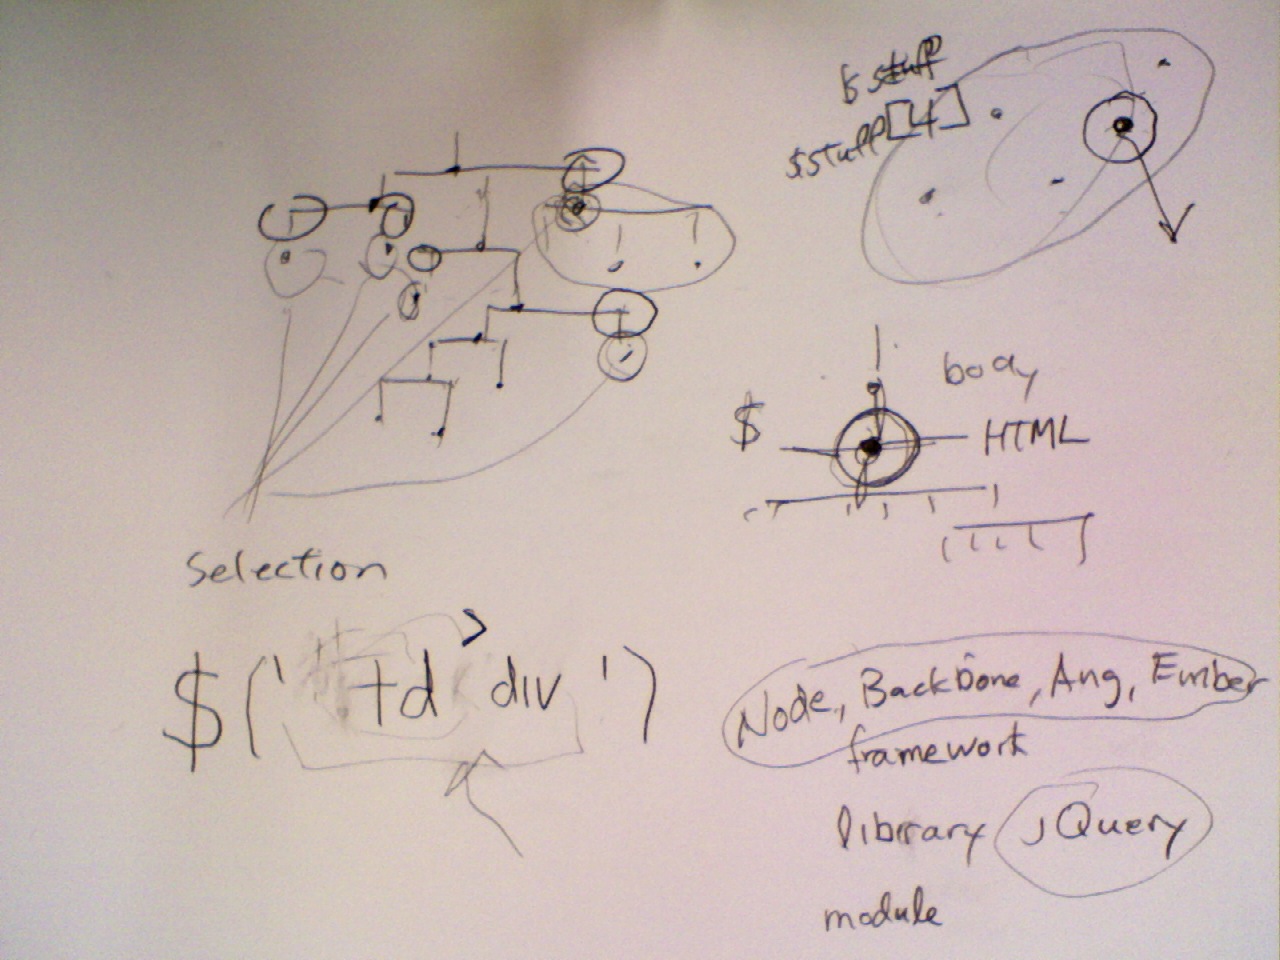 $stuff
$stuff[4]
body
$
HTML
Selection
$(' td > div ')
Node, Backbone, Ang, Ember
framework
library jQuery
module